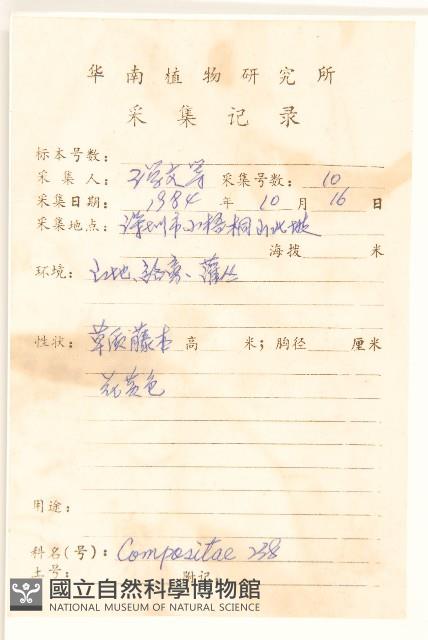 华南植物研究所
采集记录
标本号数:
采集人: 王学文等 采集号数: 10
采集日期: 1984 年 10 月 16 日
采集地点: 深圳市小梧桐山北坡
海拨 米
环境: 山地、 灌丛
性状: 草质藤本 高 米; 胸径 厘米
花黄色
用途:
科名(号): Compositae 238
土名: 附记
國立自然科學博物館
NATIONAL MUSEUM OF NATURAL SCIENCE